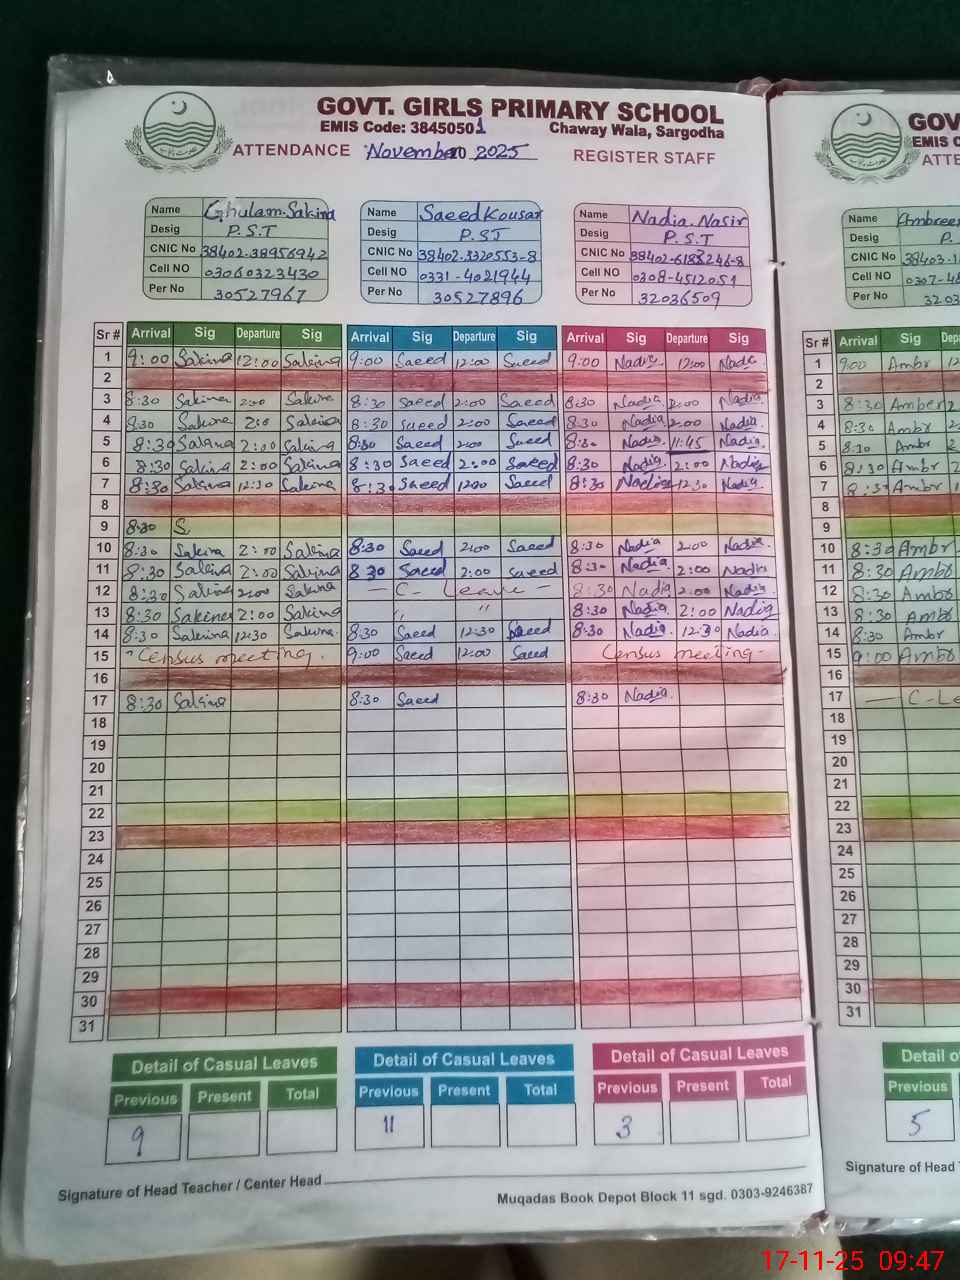 GOVT. GIRLS PRIMARY SCHOOL
EMIS Code: 38450501 Chaway Wala, Sargodha
ATTENDANCE November 2025 REGISTER STAFF
Name Ghulam Sakina
Desig P.S.T
CNIC No 38402-38956942
Cell NO 03060323430
Per No 30527967
Name Saeed Kousar
Desig P.ST
CNIC No 38402-3320553-8
Cell NO 0331-4021944
Per No 30527896
Name Nadia Nasir
Desig P.S.T
CNIC No 38402-6188246-8
Cell NO 0308-4512051
Per No 32036509
Sr # Arrival Sig Departure Sig Arrival Sig Departure Sig Arrival Sig Departure Sig
1 9:00 Sakina 12:00 Sakina 9:00 Saeed 12:00 Saeed 9:00 Nadia 12:00 Nadia
2
3 8:30 Sakina 2:00 Sakina 8:30 Saeed 2:00 Saeed 8:30 Nadia 2:00 Nadia
4 8:30 Sakina 2:0 Sakina 8:30 Saeed 2:00 Saeed 8:30 Nadia 2:00 Nadia
5 8:30 Sakina 2:00 Sakina 8:30 Saeed 2:00 Saeed 8:30 Nadia 11:45 Nadia
6 8:30 Sakina 2:00 Sakina 8:30 Saeed 2:00 Saeed 8:30 Nadia 2:00 Nadia
7 8:30 Sakina 12:30 Sakina 8:30 Saeed 12:00 Saeed 8:30 Nadia 12:30 Nadia
8
9 8:30 S
10 8:30 Sakina 2:00 Sakina 8:30 Saeed 2:00 Saeed 8:30 Nadia 2:00 Nadia
11 8:30 Sakina 2:00 Sakina 8:30 Saeed 2:00 Saeed 8:30 Nadia 2:00 Nadia
12 8:30 Sakina 2:00 Sakina — C. Leave — 8:30 Nadia 2:00 Nadia
13 8:30 Sakina 2:00 Sakina " " 8:30 Nadia 2:00 Nadia
14 8:30 Sakina 12:30 Sakina 8:30 Saeed 12:30 Saeed 8:30 Nadia 12:30 Nadia
15 "Census meeting. 9:00 Saeed 12:00 Saeed Census meeting-
16
17 8:30 Sakina 8:30 Saeed 8:30 Nadia
18
19
20
21
22
23
24
25
26
27
28
29
30
31
Detail of Casual Leaves Detail of Casual Leaves Detail of Casual Leaves
Previous Present Total Previous Present Total Previous Present Total
9 11 3
Signature of Head Teacher / Center Head
Muqadas Book Depot Block 11 sgd. 0303-9246387
GOV
EMIS C
ATTE
Name Ambreen
Desig P.
CNIC No 38403-1
Cell NO 0307-48
Per No 3203
Sr # Arrival Sig Depa
1 9:00 Ambr 12
2
3 8:30 Amber 2
4 8:30 Ambr 2
5 8:30 Ambr 2
6 8:30 Ambr
7 8:30 Ambr 1
8
9
10 8:30 Ambr
11 8:30 Ambr
12 8:30 Ambr
13 8:30 Ambr
14 8:30 Ambr
15 9:00 Ambr
16
17 — C-Le
18
19
20
21
22
23
24
25
26
27
28
29
30
31
Detail o
Previous
5
Signature of Head T
17-11-25 09:47